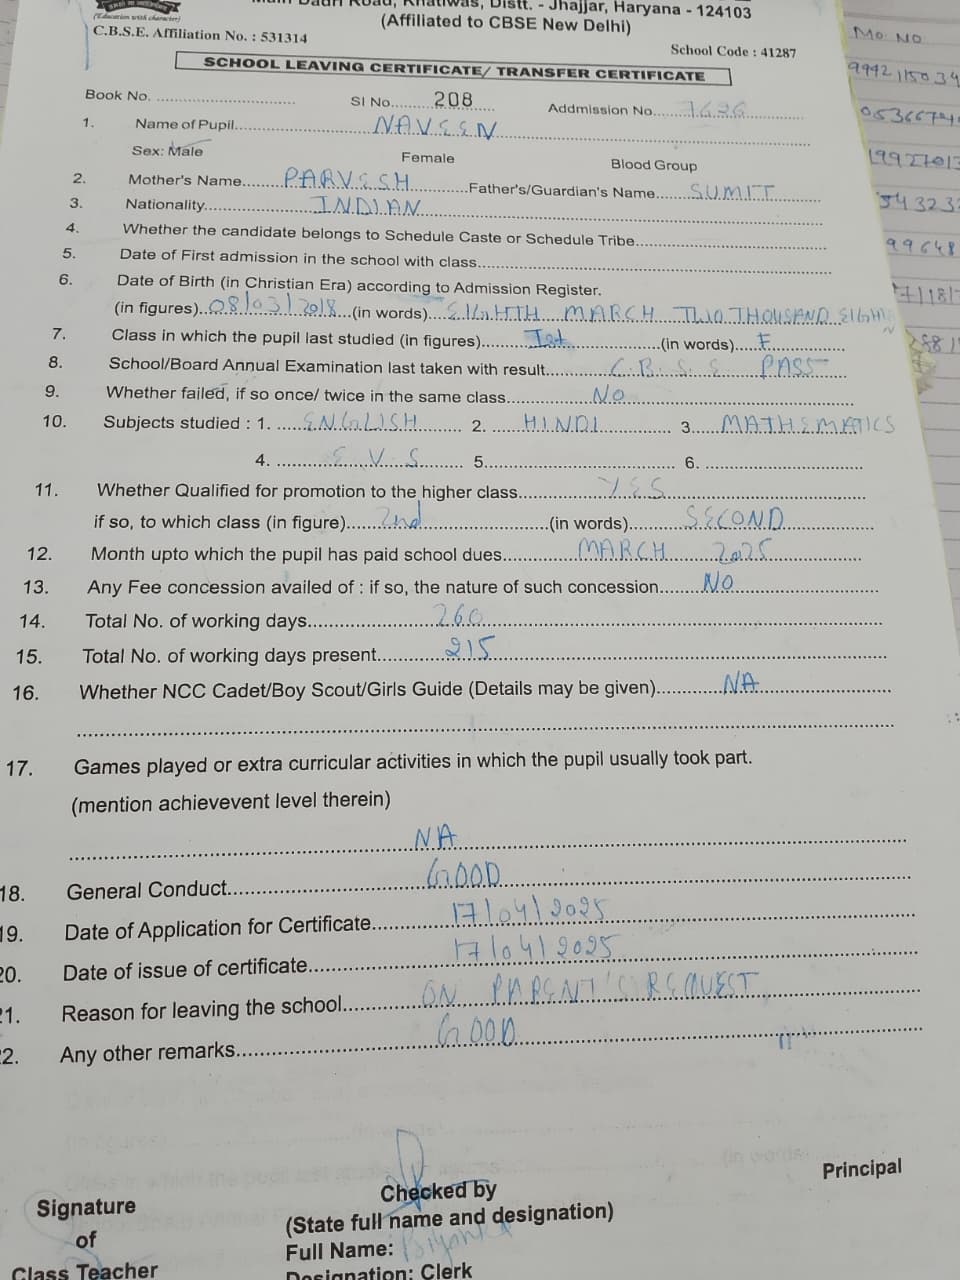 (Education with character)
Main Dadri Road, Khatiwas, Distt. - Jhajjar, Haryana - 124103
(Affiliated to CBSE New Delhi)
C.B.S.E. Affiliation No. : 531314
School Code : 41287
SCHOOL LEAVING CERTIFICATE/ TRANSFER CERTIFICATE
Book No. Sl No. 208 Addmission No. 1626
1. Name of Pupil NAVEEN
Sex: Male Female Blood Group
2. Mother's Name PARVESH Father's/Guardian's Name SUMIT
3. Nationality INDIAN
4. Whether the candidate belongs to Schedule Caste or Schedule Tribe
5. Date of First admission in the school with class
6. Date of Birth (in Christian Era) according to Admission Register.
(in figures) 08/03/2018 (in words) EIGHTH MARCH TWO THOUSAND
7. Class in which the pupil last studied (in figures) Ist (in words)
8. School/Board Annual Examination last taken with result C.B.S.E PASS
9. Whether failed, if so once/ twice in the same class No
10. Subjects studied : 1. ENGLISH 2. HINDI 3. MATHEMATICS
4. E.V.S 5. 6.
11. Whether Qualified for promotion to the higher class YES
if so, to which class (in figure) 2nd (in words) SECOND
12. Month upto which the pupil has paid school dues MARCH 2025
13. Any Fee concession availed of : if so, the nature of such concession No
14. Total No. of working days 260
15. Total No. of working days present 215
16. Whether NCC Cadet/Boy Scout/Girls Guide (Details may be given) NA
17. Games played or extra curricular activities in which the pupil usually took part.
(mention achievevent level therein)
NA
18. General Conduct GOOD
19. Date of Application for Certificate 17/04/2025
20. Date of issue of certificate 17/04/2025
21. Reason for leaving the school ON PARENT'S REQUEST
22. Any other remarks GOOD
Signature
of
Class Teacher
Checked by
(State full name and designation)
Full Name:
Designation: Clerk
Principal
Mo. NO